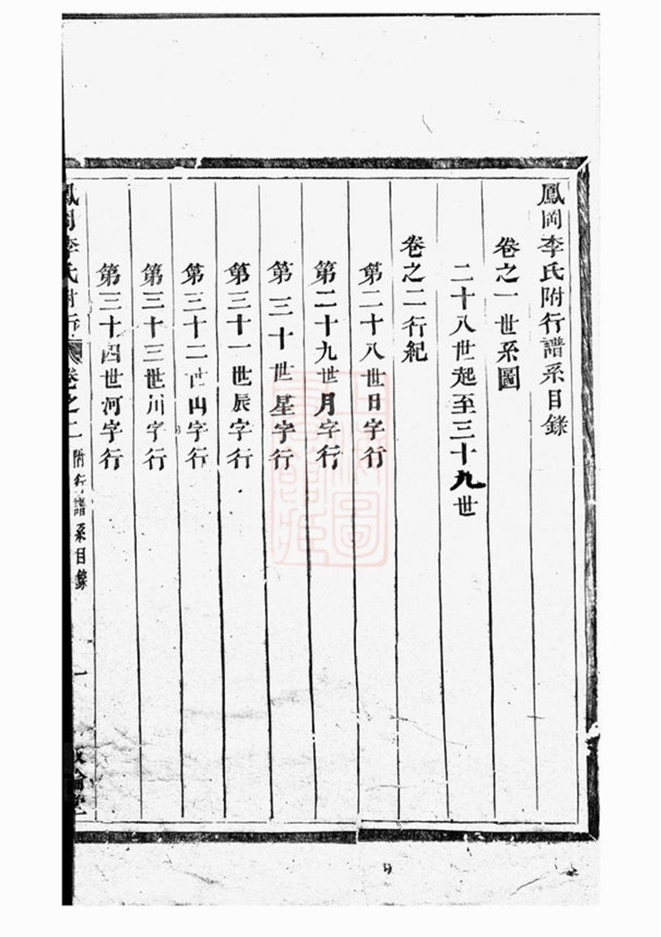 鳳岡李氏附行譜系目錄
卷之一世系圖
二十八世起至三十九世
卷之二行紀
第二十八世日字行
第二十九世月字行
第三十世星字行
第三十一世辰字行
第三十二世山字行
第三十三世川字行
第三十四世河字行
鳳岡李氏附行 卷之二 附行譜系目錄 一 倫堂